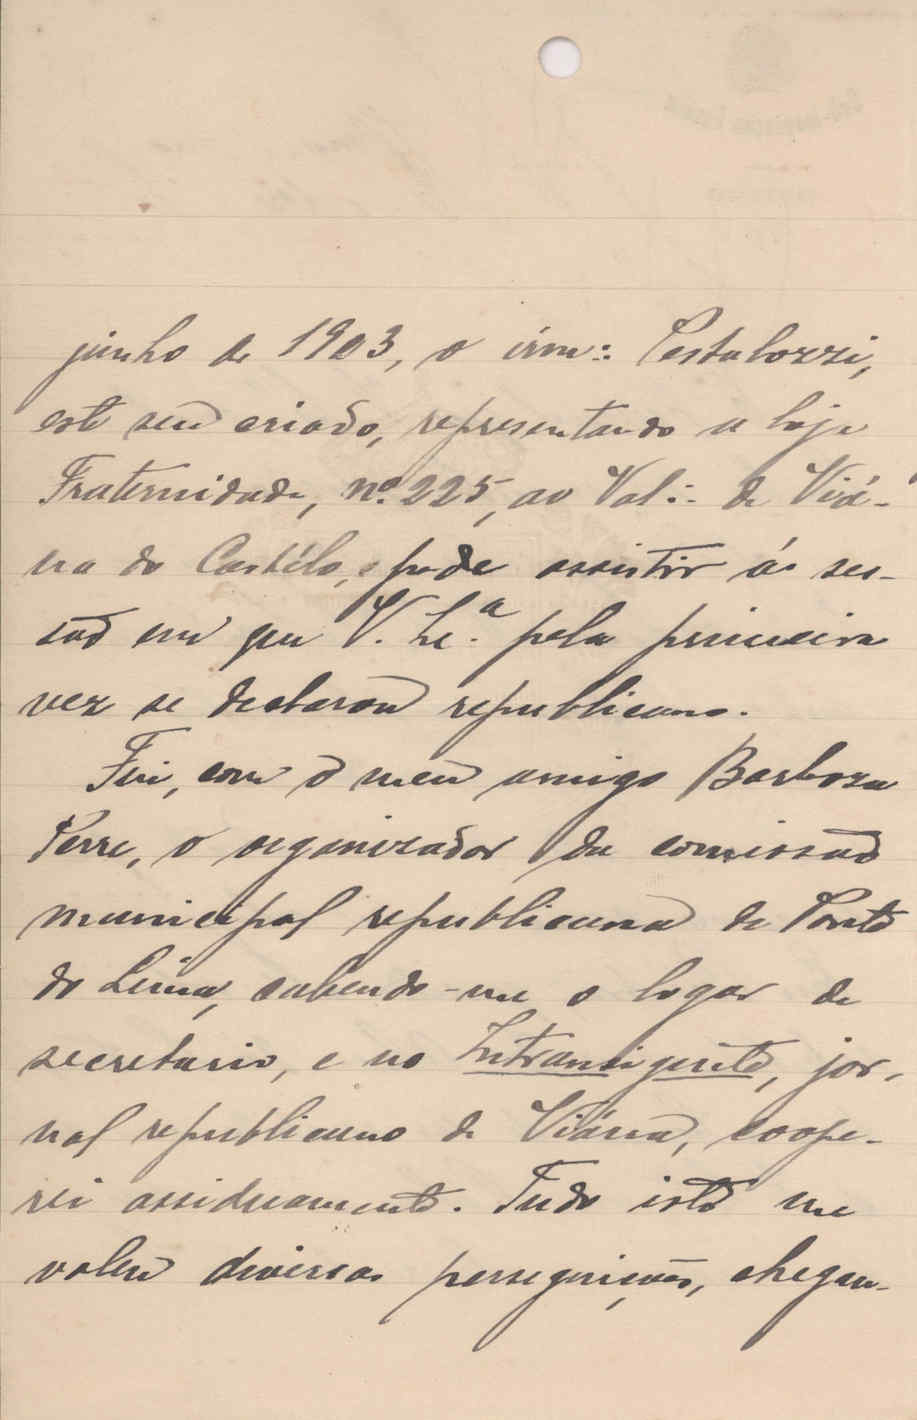 junho de 1903, o irm∴ Pestalozzi,
este seu criado, representando a loja
Fraternidade, nº 225, ao Val∴ de Viá-
na do Castélo, pude assistir á ses-
são em que V. Ex.ª pela primeira
vez se declarou republicano.
Fui, com o meu amigo Barbosa
Perre, o organizador da comissão
municipal republicana de Ponte
do Lima, cabendo-me o logar de
secretario, e no Intransigente, jor-
nal republicano de Viána, coope-
rei assiduamente. Tudo isto me
valeu diversas perseguições, chegan-